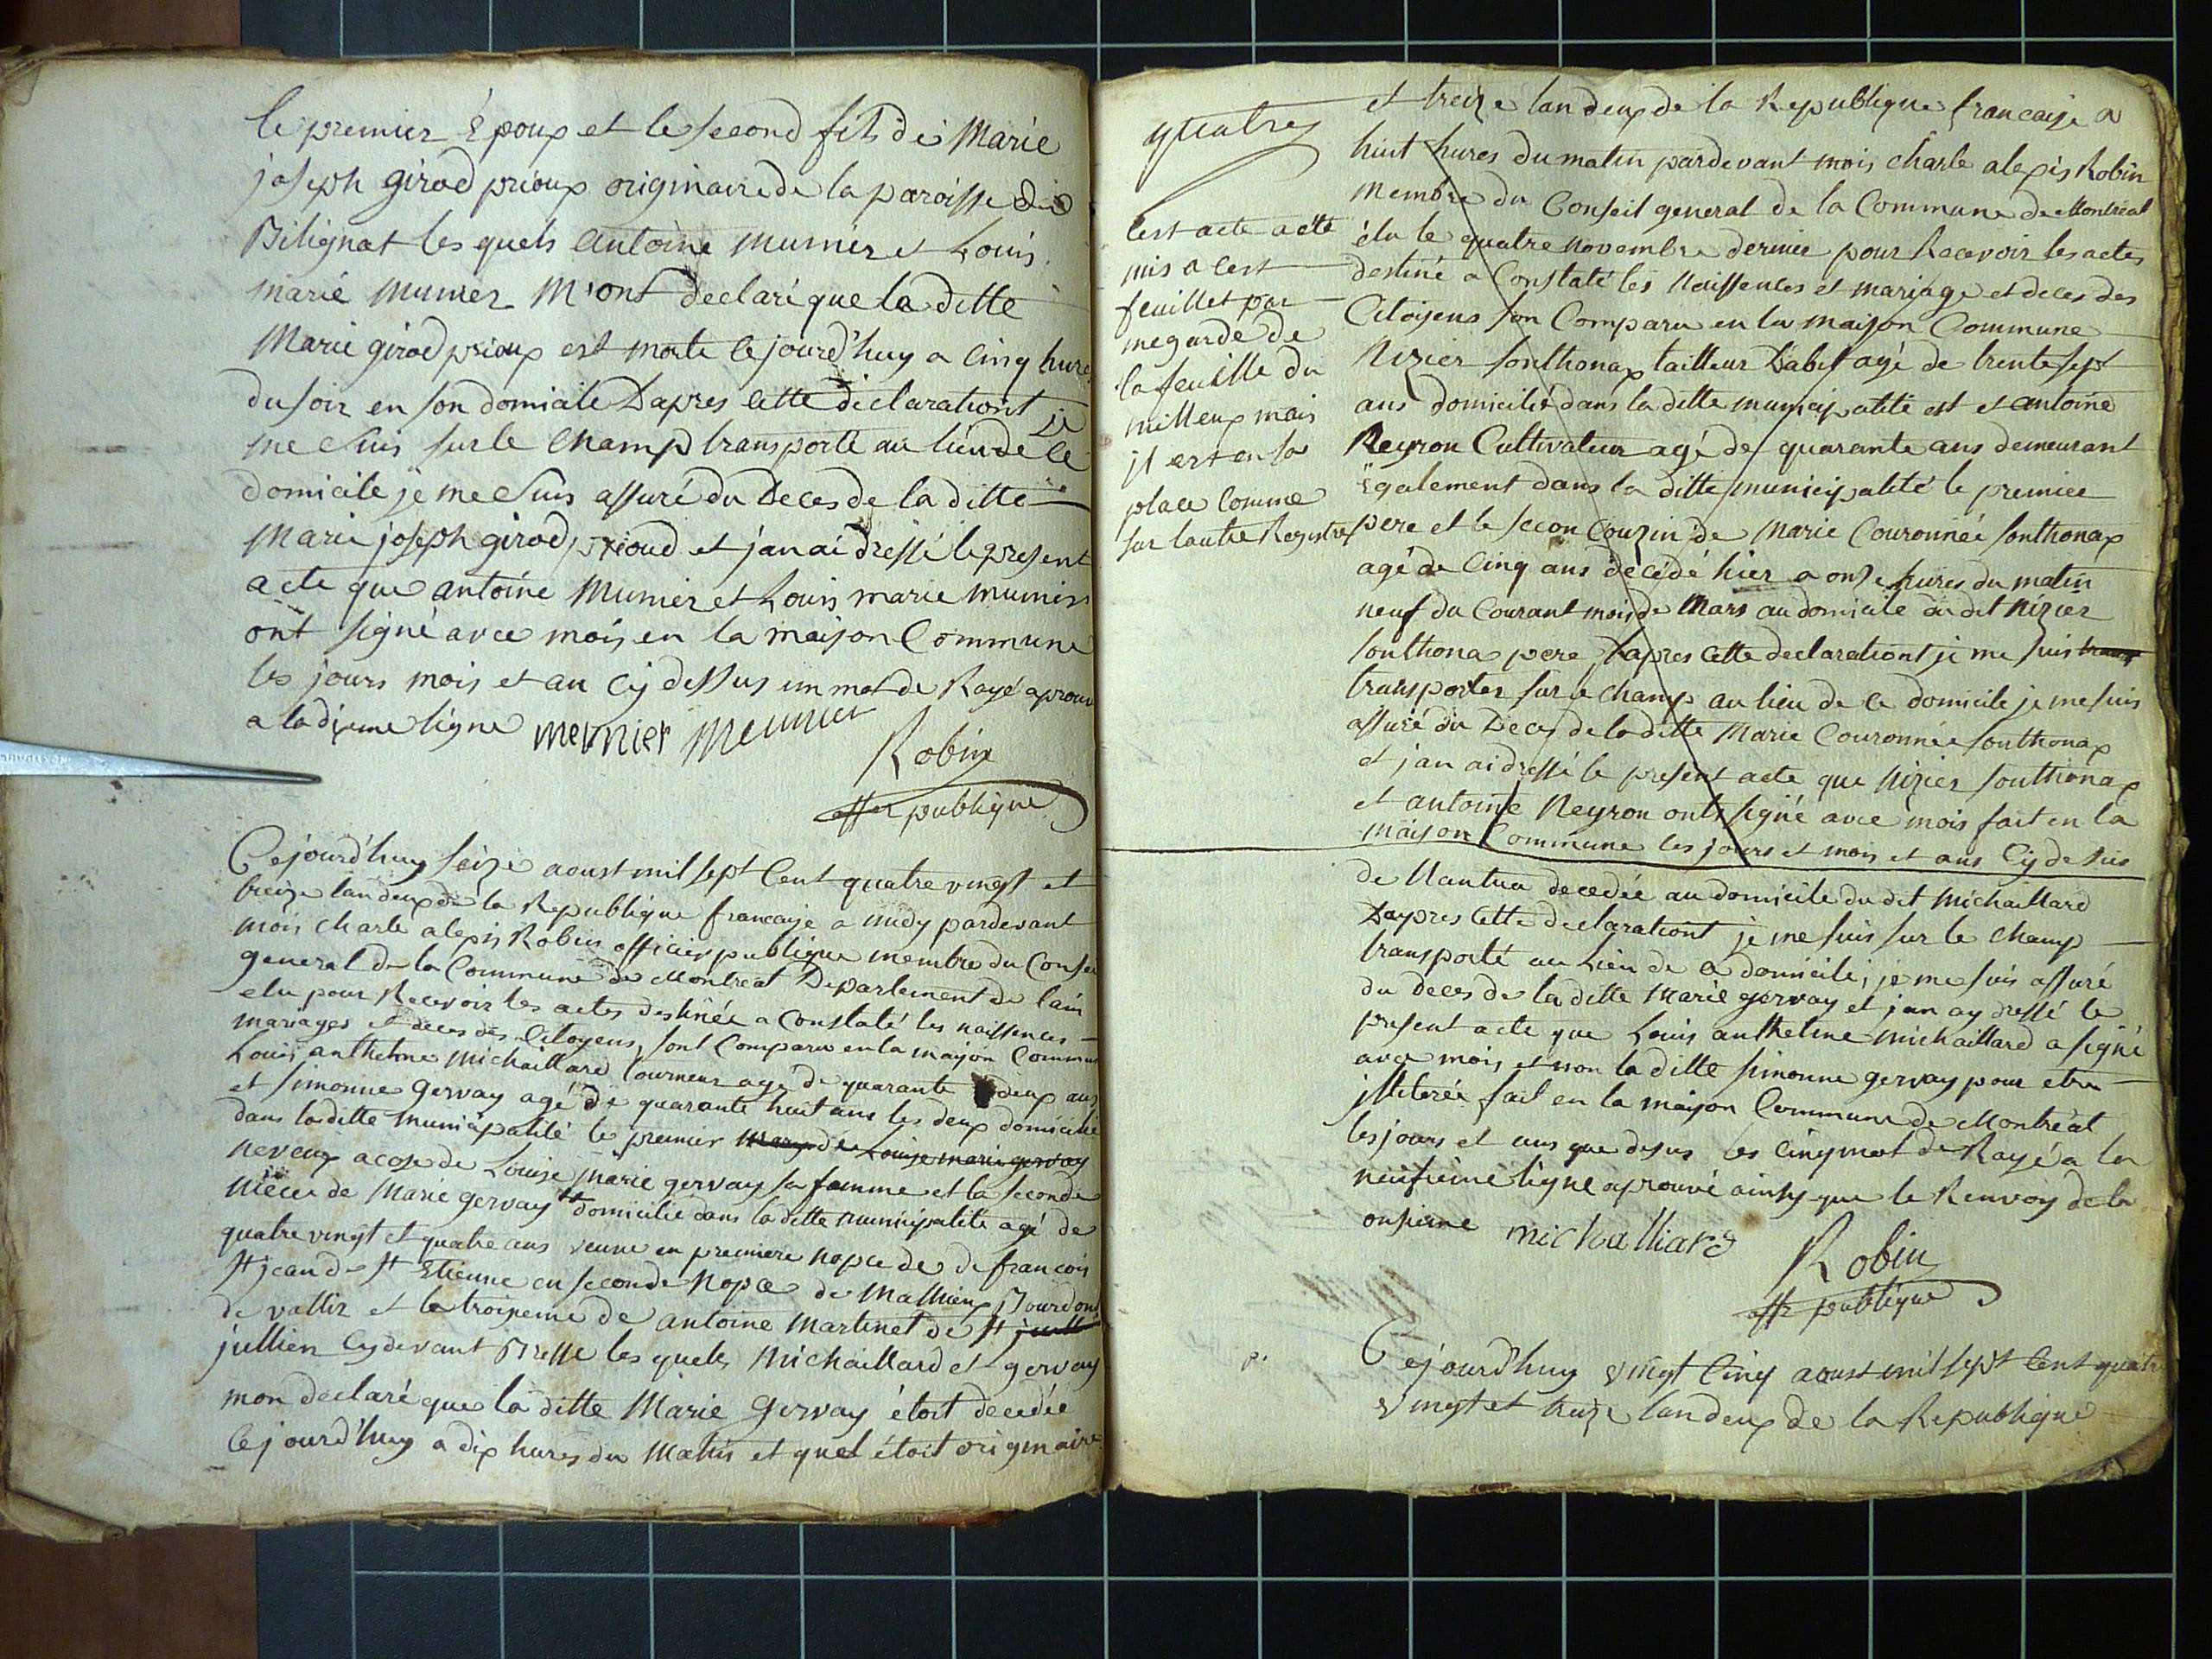 le premier Epoux et le second fils de Marie
joseph girod prioux originaire de la paroisse de
Bilignat les quels antoine munier et Louis
marie munier m'ont declaré que la ditte
Marie girod prioux est morte cejourd'huy a cinq hures
du soir en son domicile D'apres cette declarationt je
me suis sur le champ transporté au lieu de ce
domicile je me suis assuré du Deces de la ditte
Marie joseph girod prioud et j'anai dressé le present
acte que antoine Munier et Louis marie munier
ont signé avec mois en la maison Commune
les jours mois et an cy dessus un mot de Rayé aprouvé
a la dixieme ligne mevnier Meunier
Robin
offer publique
Cejourd'huy seize aoust mil sept Cent quatre vingt et
treize lan deux de la Republique francaise a midy pardevant
mois charle alexis Robin officier publique membre du Conseil
general de la Commune de Montreal Departement de l'ain
elu pour Recevoir les actes destinée a Constaté les naissences
mariages et deces des Citoyens, sont Comparu en la maison Commune
Louis anthelme Michaillard tourneur agé de quarante deux ans
et simonne Gervay agé de quarante huit ans les deux domicilié
dans la ditte municipalité le premier mary de Louise marie gervay
neveux acose de Louise marie gervay sa famme et la seconde
niece de Marie Gervay domicilié dans la ditte municipalité agé de
quatre vingt et quatre ans veuve en premiere nopce de de francois
st jean de st Etienne en seconde nopce de Mathieu Bourdon
de vallir et la troisieme de antoine Martinet de st
jullien cydevant Bresse les quels Michaillard et gervay
mon declaré que la ditte Marie Gervay étoit decedée
cejourd'huy a dix hures du Matin et quel étoit originaire
quatre
Cest acte a été
mis a cest
feuillet par
megarde de
la feuille du
millieux mais
il est en sa
place comme
sur lautre Registre
et treize lan deux de la Republique francaise a
huit hures du matin pardevant mois charle alexis Robin
membre du Conseil general de la Commune de Montréal
élu le quatre Novembre dernier pour Recevoir les actes
destiné a Constaté les Naissences et mariage et deces des
Citoyens son Comparu en la maison Commune
Nizier sonthonax tailleur D'abit agé de trente sept
ans domicilié dans la ditte municipalité est et antoine
Reyron Cultivateur agé de quarante ans demeurant
Egalement dans la ditte municipalité le premier
pere et le secon Couzin de Marie Couronnée sonthonax
agé de cinq ans décédé hier a onse hures du matin
neuf du Courant mois de Mars au domicile du dit Nizier
sonthona pere, D'apres cette declarationt je me suis
transporter sur le champ au lieu de ce domicile je me suis
assuré du Deces de la ditte Marie Couronnée sonthonax
et j'an ai dressé le present acte que Nizier sonthonax
et antoine Reyron ont signé avec mois fait en la
maison Commune les jours et mois et ans Cy de sus
de Nantua decedée au domicile du dit Michaillard
D'apres cette declarationt je me suis sur le champ
transporté au Lieu de ce domicile, je me suis assuré
du deces de la ditte Marie gervay et jan ay dressé le
present acte que Louis anthelme Michaillard a signé
avec mois, et non la ditte simonne gervay pour etre
illiterée fait en la maison Commune de Montréal
les jours et ans que desus les cinq mot de Rayé a la
neufieme ligne aprouvé ainsy que le Renvoy de la
onsieme michalliard
Robin
offr publique
Cejourd'huy vingt Cinq aoust mil sept Cent quatre
vingt et treize lan deux de la Republique